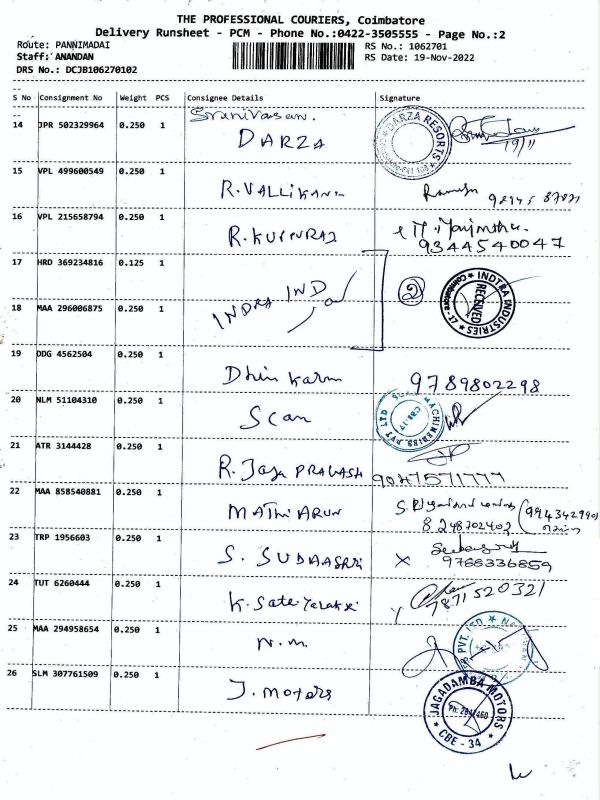 THE PROFESSIONAL COURIERS, Coimbatore
Delivery Runsheet - PCM - Phone No.:0422-3505555 - Page No.:2
Route: PANNIMADAI RS No.: 1062701
Staff: ANANDAN RS Date: 19-Nov-2022
DRS No.: DCJB106270102
S No Consignment No Weight PCS Consignee Details Signature
14 JPR 502329964 0.250 1 Srinivasan. DARZA DARZA RESORTS 19/11
15 VPL 499600549 0.250 1 R. VALLIKANN
16 VPL 215658794 0.250 1 9344540047
17 HRD 369234816 0.125 1 INDRA IND 2 INDTRA INDUSTRIES RECEIVED Coimbatore - 17
18 MAA 296006875 0.250 1
19 DDG 4562504 0.250 1 Dhin Karan 9789802298
20 NLM 51104310 0.250 1 Scan MACHINERIES PVT LTD CBE-17
21 ATR 3144428 0.250 1 R. Jaya PRAKASH
22 MAA 858540881 0.250 1 MATHI ARUN 8248702402
23 TRP 1956603 0.250 1 S. SUDAASRI X 9788336859
24 TUT 6260444 0.250 1 7871520321
25 MAA 294958654 0.250 1 N.M. PVT. LTD
26 SLM 307761509 0.250 1 J. Motors JAGADAMBA MOTORS CBE - 34